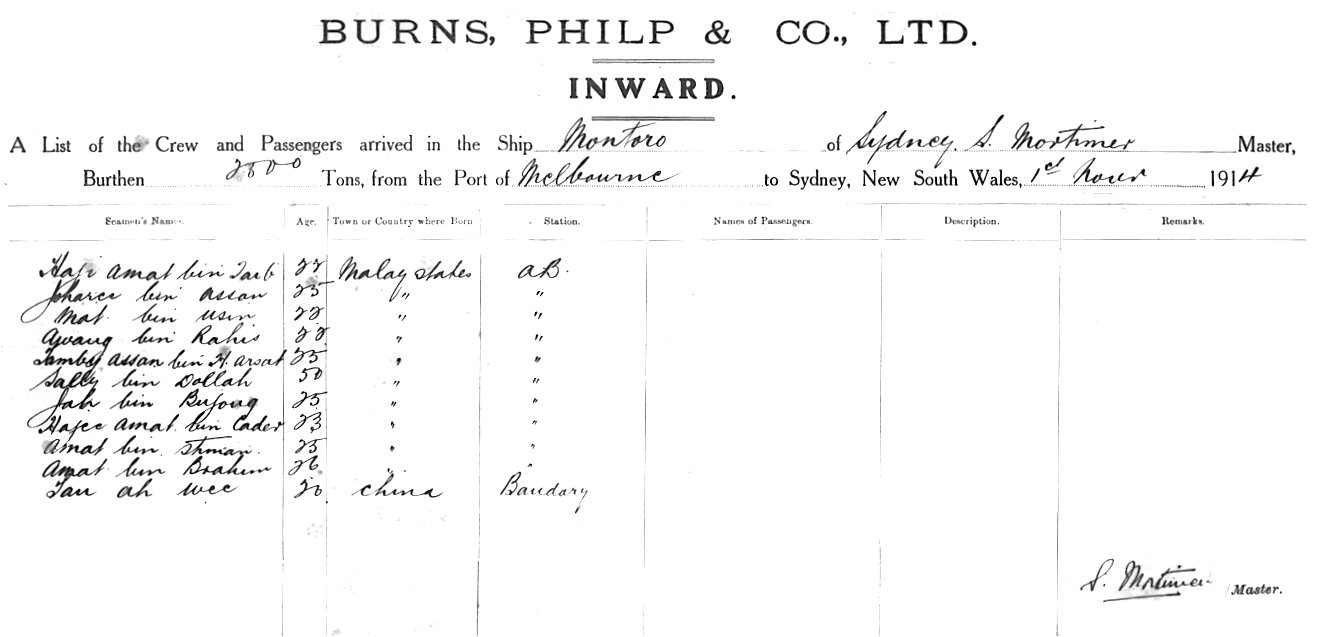 BURNS, PHILP & CO., LTD.
INWARD.
A List of the Crew and Passengers arrived in the Ship Montoro of Sydney. S. Mortimer Master,
Burthen 2500 Tons, from the Port of Melbourne to Sydney, New South Wales, 1st 1914
Seamen's Names. Age. Town or Country where Born Station. Names of Passengers. Description. Remarks.
Haji Amat bin 22 Malay States AB.
Joharee bin Assan 25 " "
Mat bin Usin 22 " "
Awang bin Rahis 22 " "
Tamby Assan bin H. Arsat 25 " "
Sally bin Dollah 50 " "
Jah bin Bujong 25 " "
Hajee Amat bin Cader 23 " "
Amat bin 25 " "
Amat bin Brahim 26 " "
Tan ah wee 20 China Bandary
S. Mortimer Master.